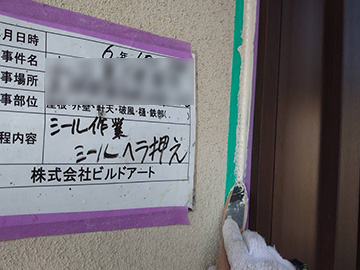 月日時 6年
事件名
事場所
事部位 屋根・外壁・軒天・破風・樋・鉄部(
程内容 シール作業
シールヘラ押え
株式会社ビルドアート